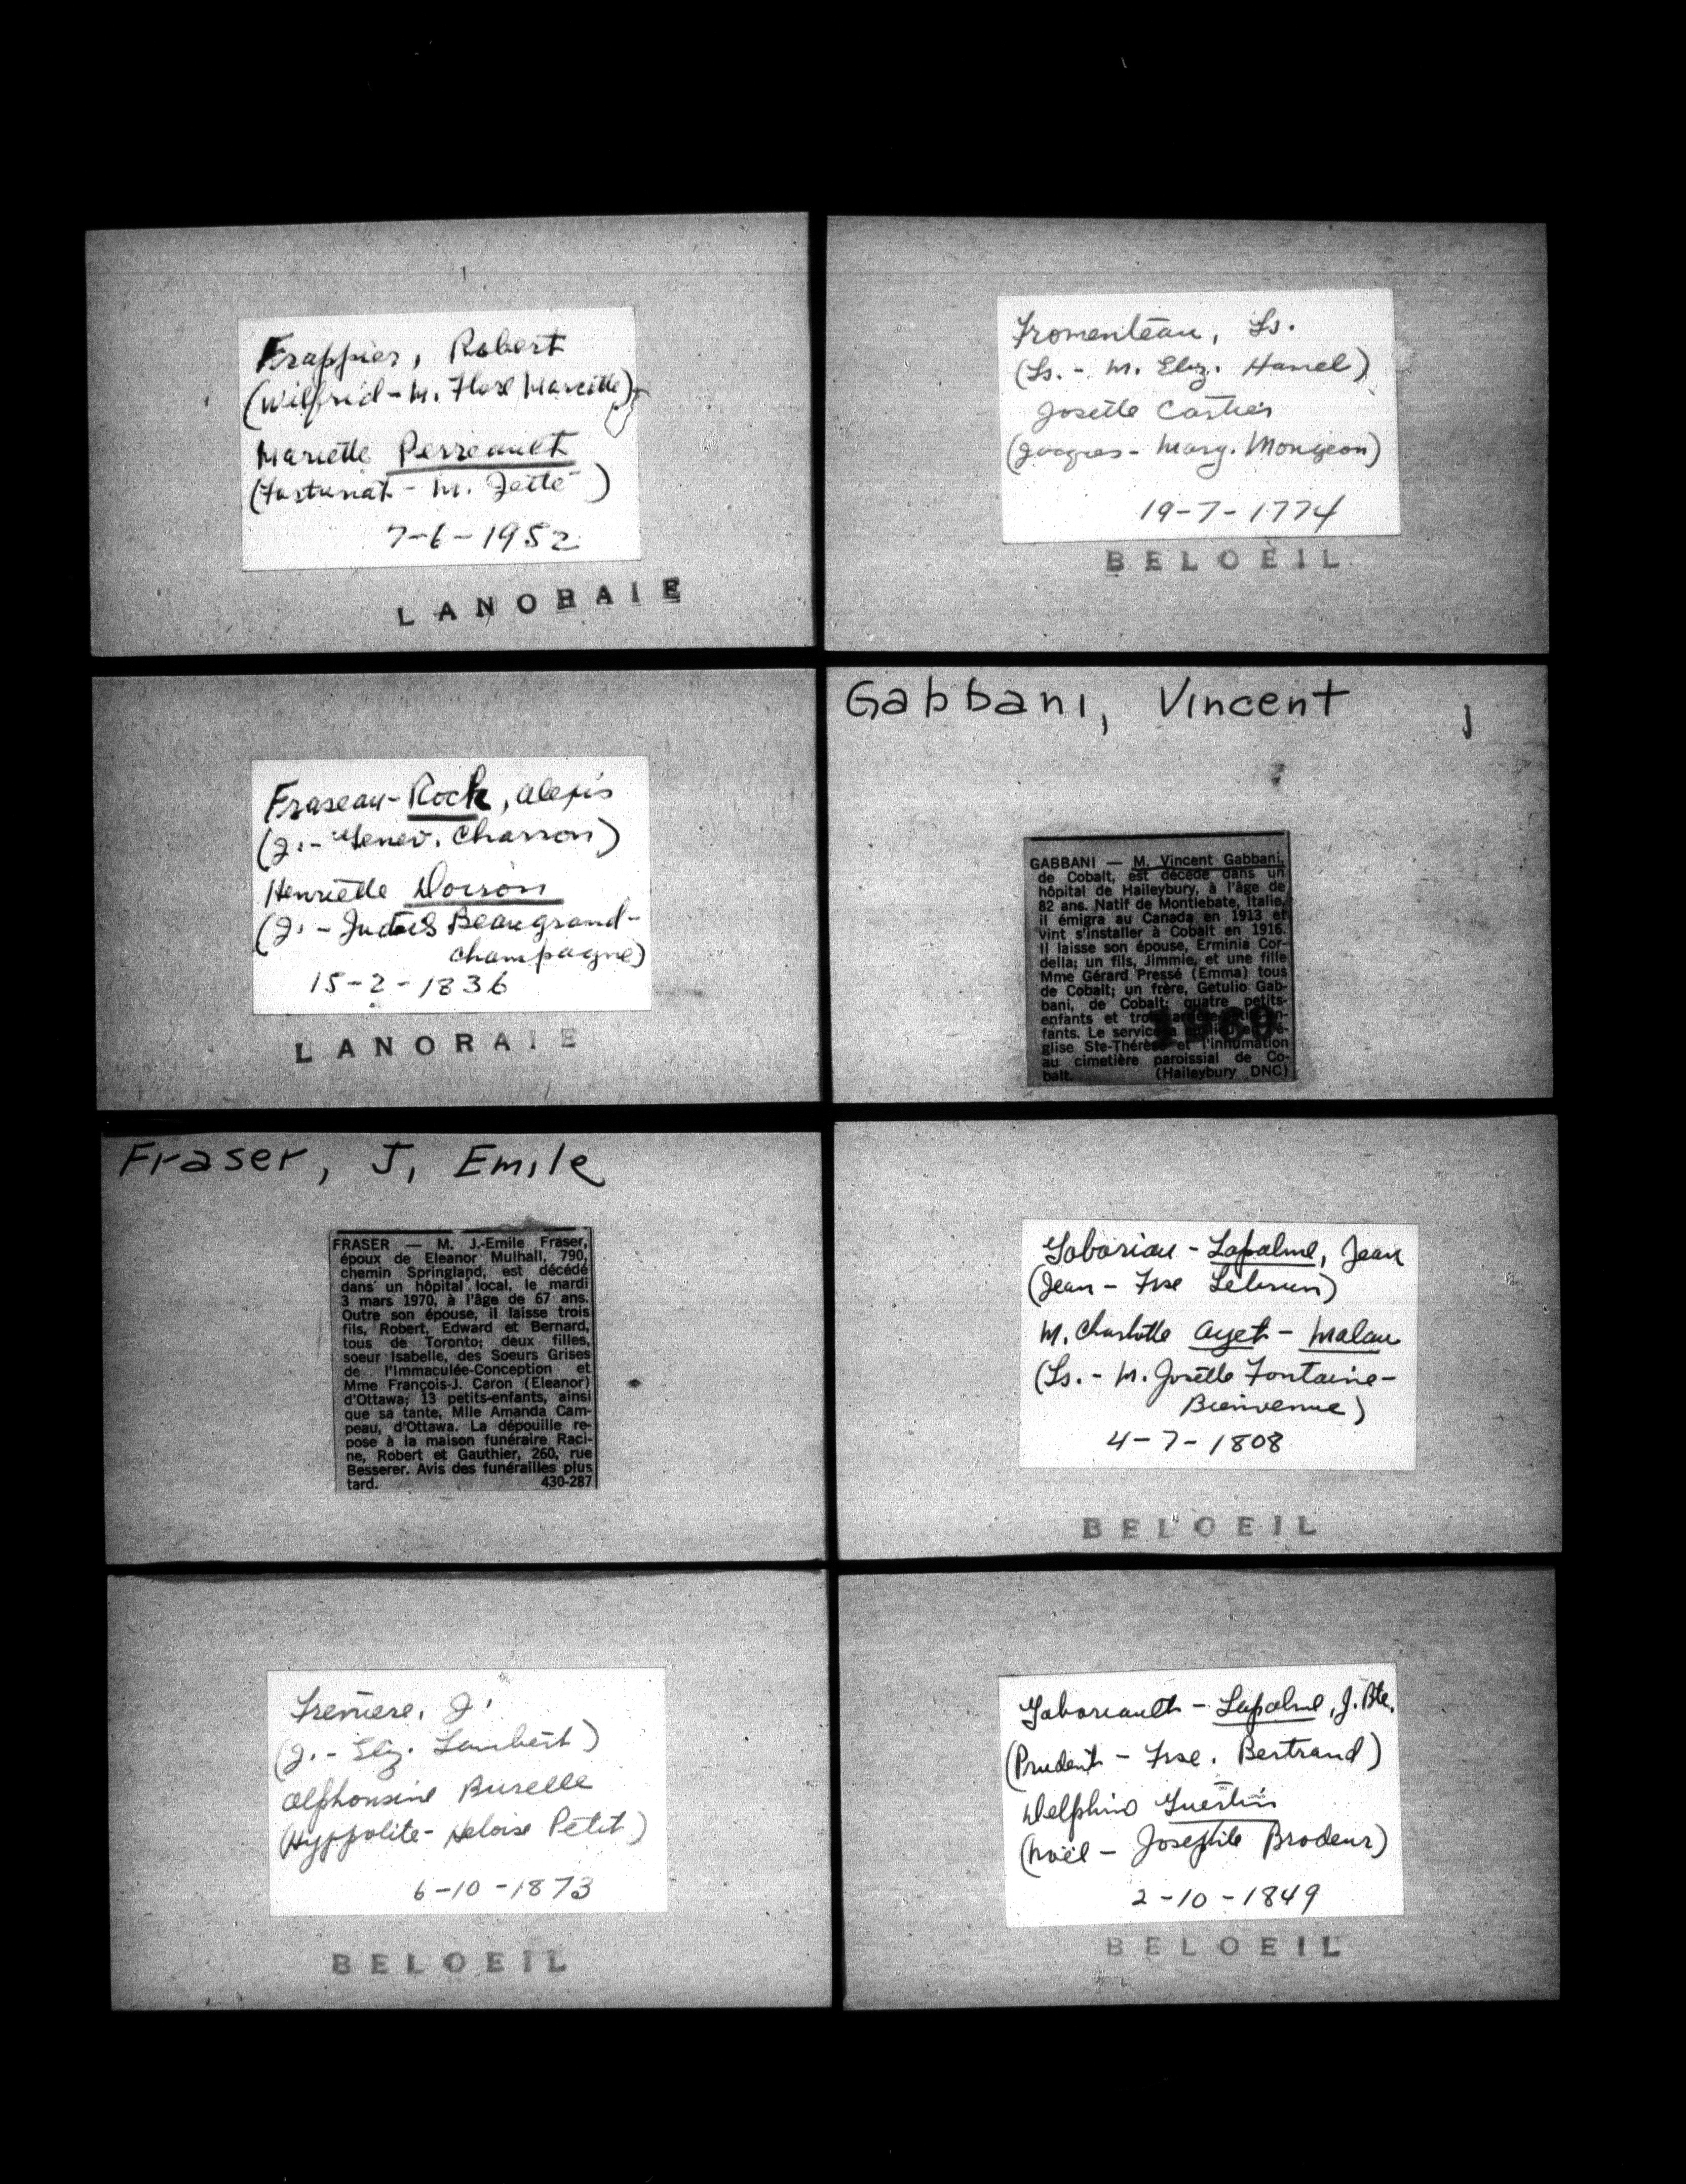 Frappier, Robert
(Wilfrid - M. Flore Marcotte)
Mariette Perreault
(Fortunat - M. Jetté)
7-6-1952
LANORAIE
Fraseau-Rock, Alexis
(J. - Genev. Charron)
Henriette Doiron
(J. - Judith Beaugrand-
Champagne)
15-2-1836
LANORAIE
Fraser, J. Emile
FRASER — M. J.-Emile Fraser,
époux de Eleanor Mulhall, 790,
chemin Springland, est décédé
dans un hôpital local, le mardi
3 mars 1970, à l'âge de 67 ans.
Outre son épouse, il laisse trois
fils, Robert, Edward et Bernard,
tous de Toronto; deux filles,
soeur Isabelle, des Soeurs Grises
de l'Immaculée-Conception et
Mme François-J. Caron (Eleanor)
d'Ottawa; 13 petits-enfants, ainsi
que sa tante, Mlle Amanda Cam-
peau, d'Ottawa. La dépouille re-
pose à la maison funéraire Raci-
ne, Robert et Gauthier, 260, rue
Besserer. Avis des funérailles plus
tard. 430-287
Freniere, J.
(J. - Eliz. Lambert)
Alphonsine Burelle
(Hyppolite - Heloise Petit)
6-10-1873
BELOEIL
Fromenteau, Ls.
(Ls. - M. Eliz. Hamel)
Josette Cartier
(Jacques - Marg. Mongeon)
19-7-1774
BELOEIL
Gabbani, Vincent
GABBANI — M. Vincent Gabbani,
de Cobalt, est décédé dans un
hôpital de Haileybury, à l'âge de
82 ans. Natif de Montlebate, Italie,
il émigra au Canada en 1913 et
vint s'installer à Cobalt en 1916.
Il laisse son épouse, Erminia Cor-
della; un fils, Jimmie, et une fille
Mme Gérard Pressé (Emma) tous
de Cobalt; un frère, Getulio Gab-
bani, de Cobalt; quatre petits-
enfants et
fants. Le service
glise Ste-Thérèse et l'inhumation
au cimetière paroissial de Co-
balt. (Haileybury DNC)
Gaboriau - Lapalme, Jean
(Jean - Frse Lebrun)
M. Charlotte Ayet - Malau
(Ls. - M. Josette Fontaine-
Bienvenue)
4-7-1808
BELOEIL
Gaboriault - Lapalme, J. Bte.
(Prudent - Frse. Bertrand)
Delphine Guertin
(Noël - Josephte Brodeur)
2-10-1849
BELOEIL